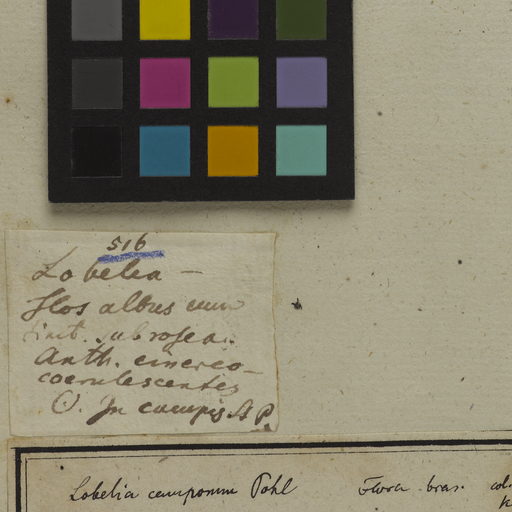 516
Lobelia —
flos albus cum
tinct. subrosea.
Anth. cinereo-
coerulescentes
O. In campis St P.
Lobelia camporum Pohl Flora bras. col.